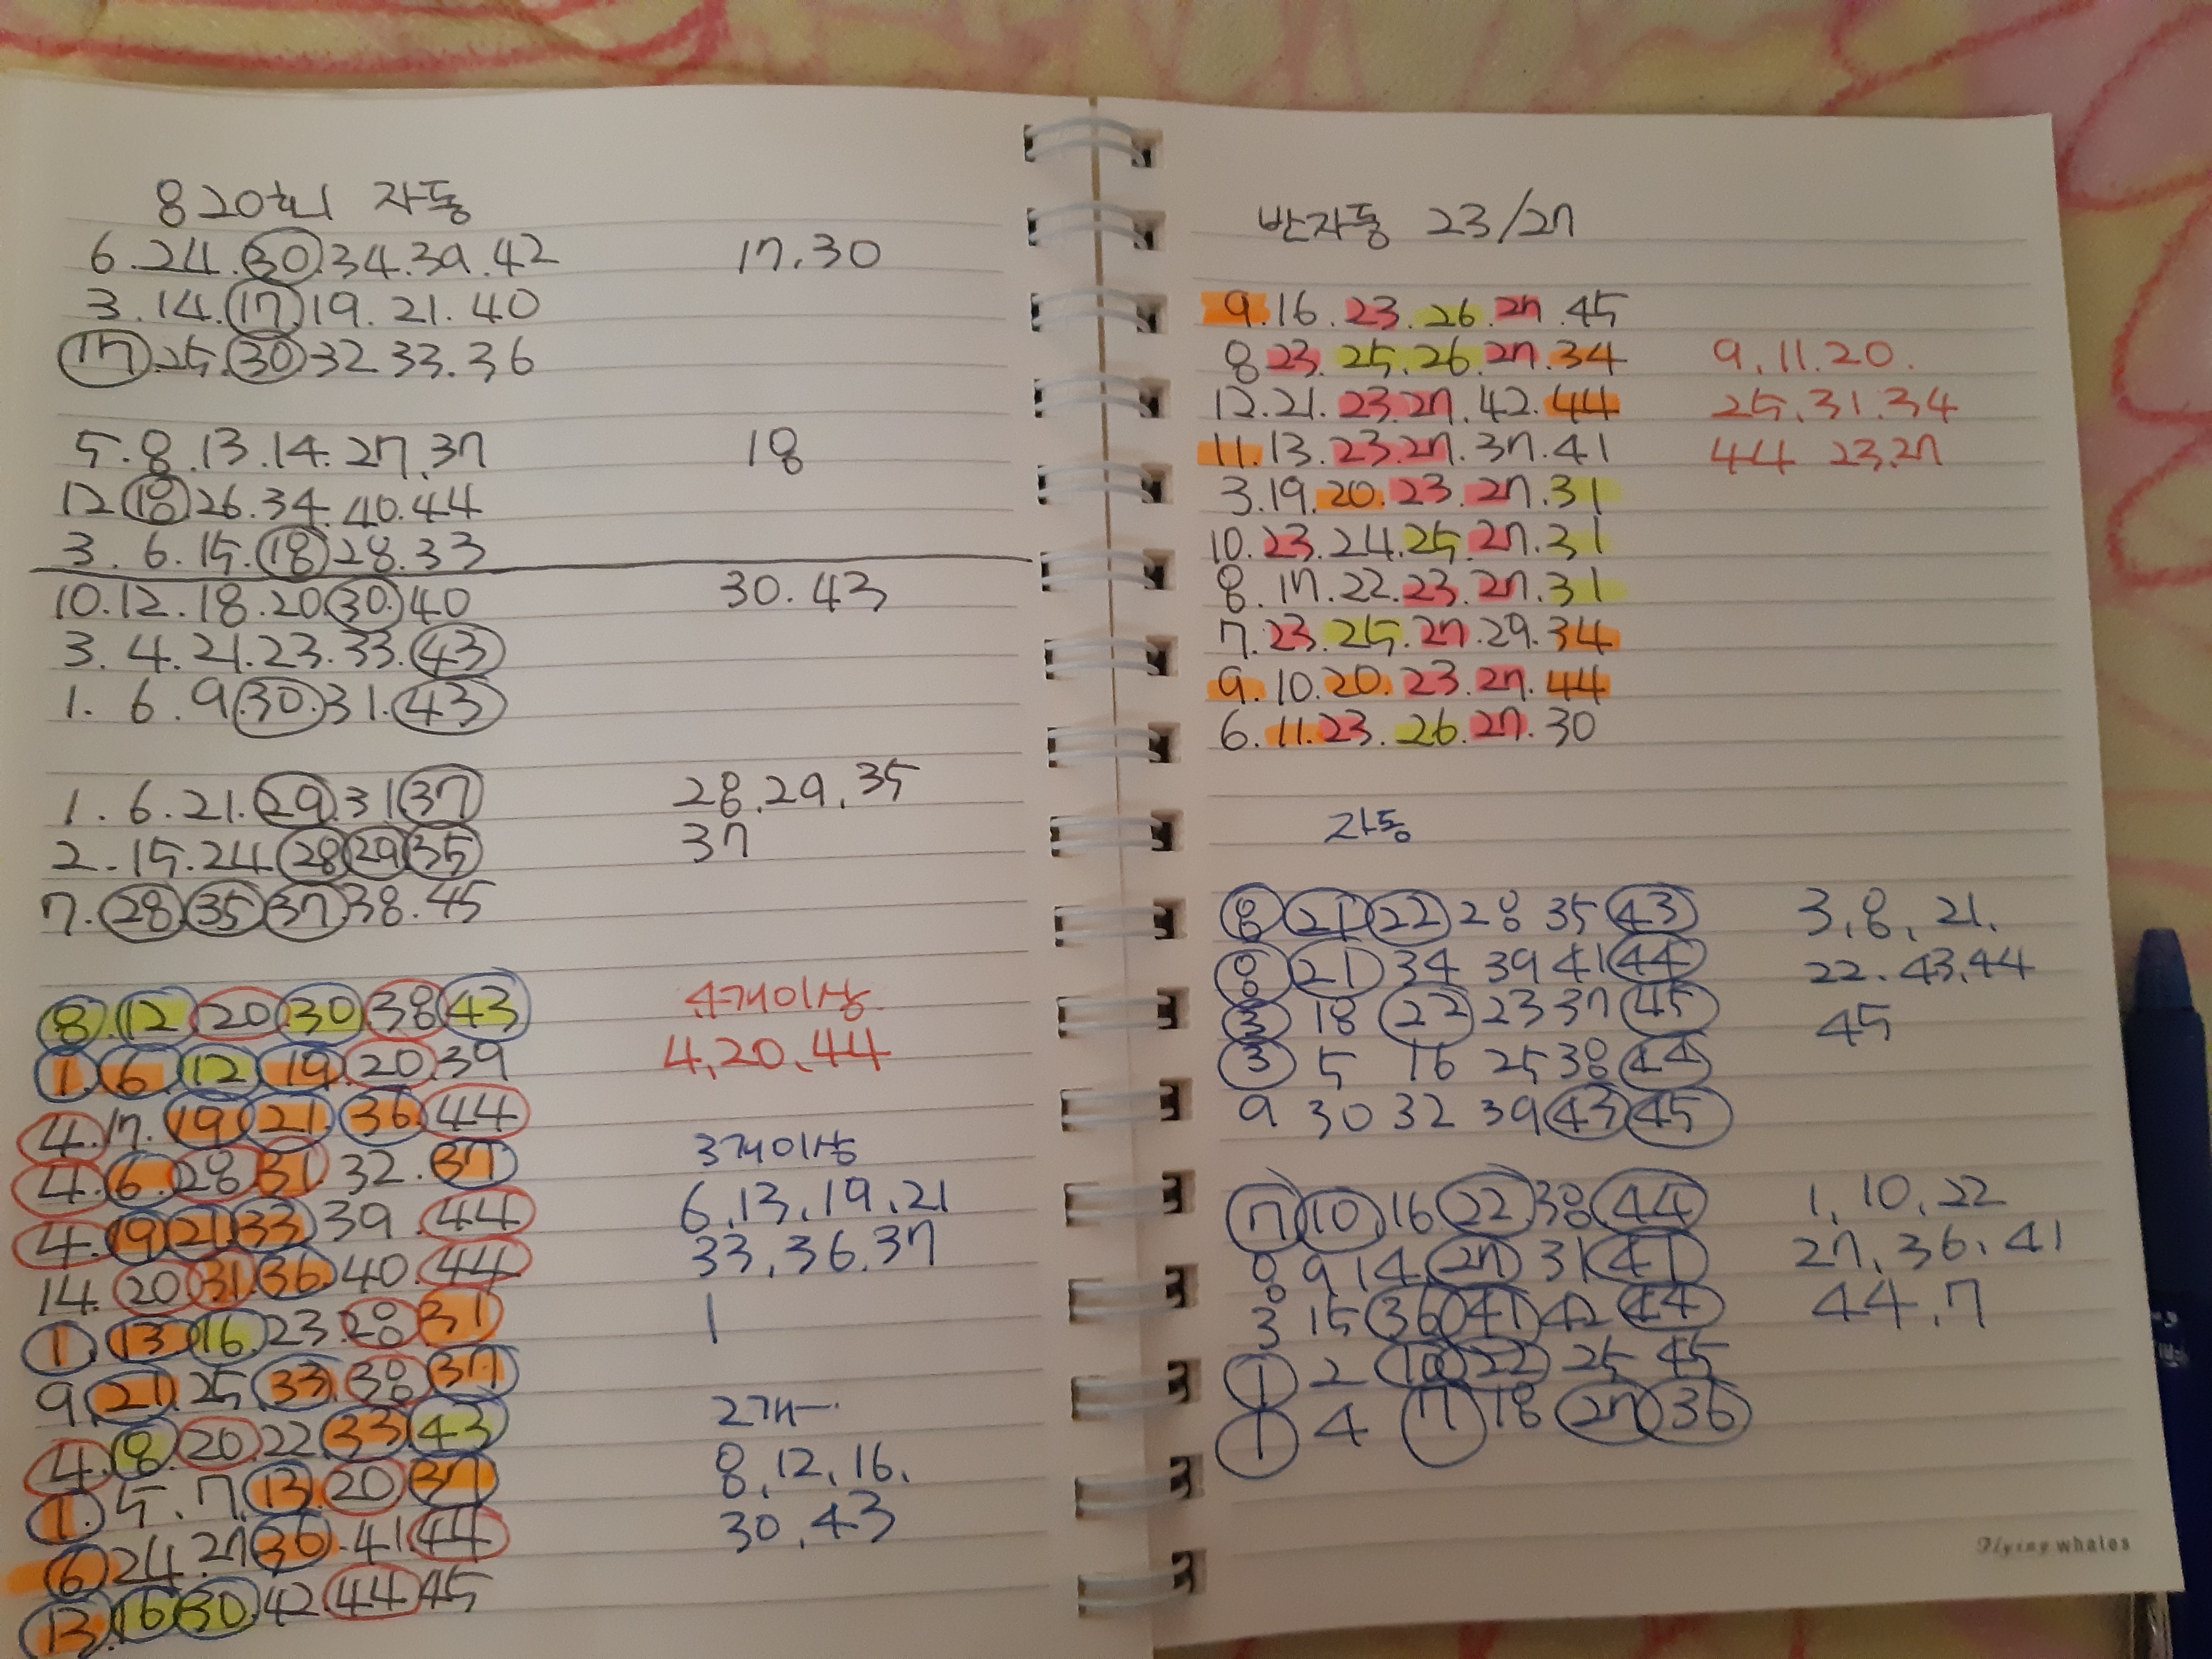 820회 자동
6.24.30.34.39.42 17.30
3.14.17.19.21.40
17.25.30.32.33.36
5.8.13.14.27.37 18
12.18.26.34.40.44
3.6.15.18.28.33
10.12.18.20.30.40 30.43
3.4.21.23.33.43
1.6.9.30.31.43
1.6.21.29.31.37 28.29.35
2.15.24.28.29.35 37
7.28.35.37.38.45
8.12.20.30.38.43 4개이상
1.6.12.19.20.39 4,20,44
4.17.19.21.36.44
4.6.28.31.32.37 3개이상
4.19.21.33.39.44 6,13,19,21
14.20.31.36.40.44 33,36,37
1.13.16.23.28.31 1
9.21.25.33.38.37
4.8.20.22.33.43 2개
1.5.7.13.20.37 8,12,16,
6.24.27.36.41.44 30,43
13.16.30.42.44.45
반자동 23/27
9.16.23.26.27.45
8.23.25.26.27.34 9,11.20.
12.21.23.27.42.44 25,31,34
11.13.23.27.37.41 44 23,27
3.19.20.23.27.31
10.23.24.25.27.31
8.17.22.23.27.31
7.23.25.27.29.34
9.10.20.23.27.44
6.11.23.26.27.30
자동
8 21 22 28 35 43 3,8,21.
8 21 34 39 41 44 22.43.44
3 18 22 23 37 45 45
3 5 16 25 38 44
9 30 32 39 43 45
7 10 16 22 38 44 1,10,22
8 9 14 27 31 41 27,36,41
3 15 36 41 42 44 44,7
1 2 10 22 25 45
1 4 7 18 27 36
Flying whales